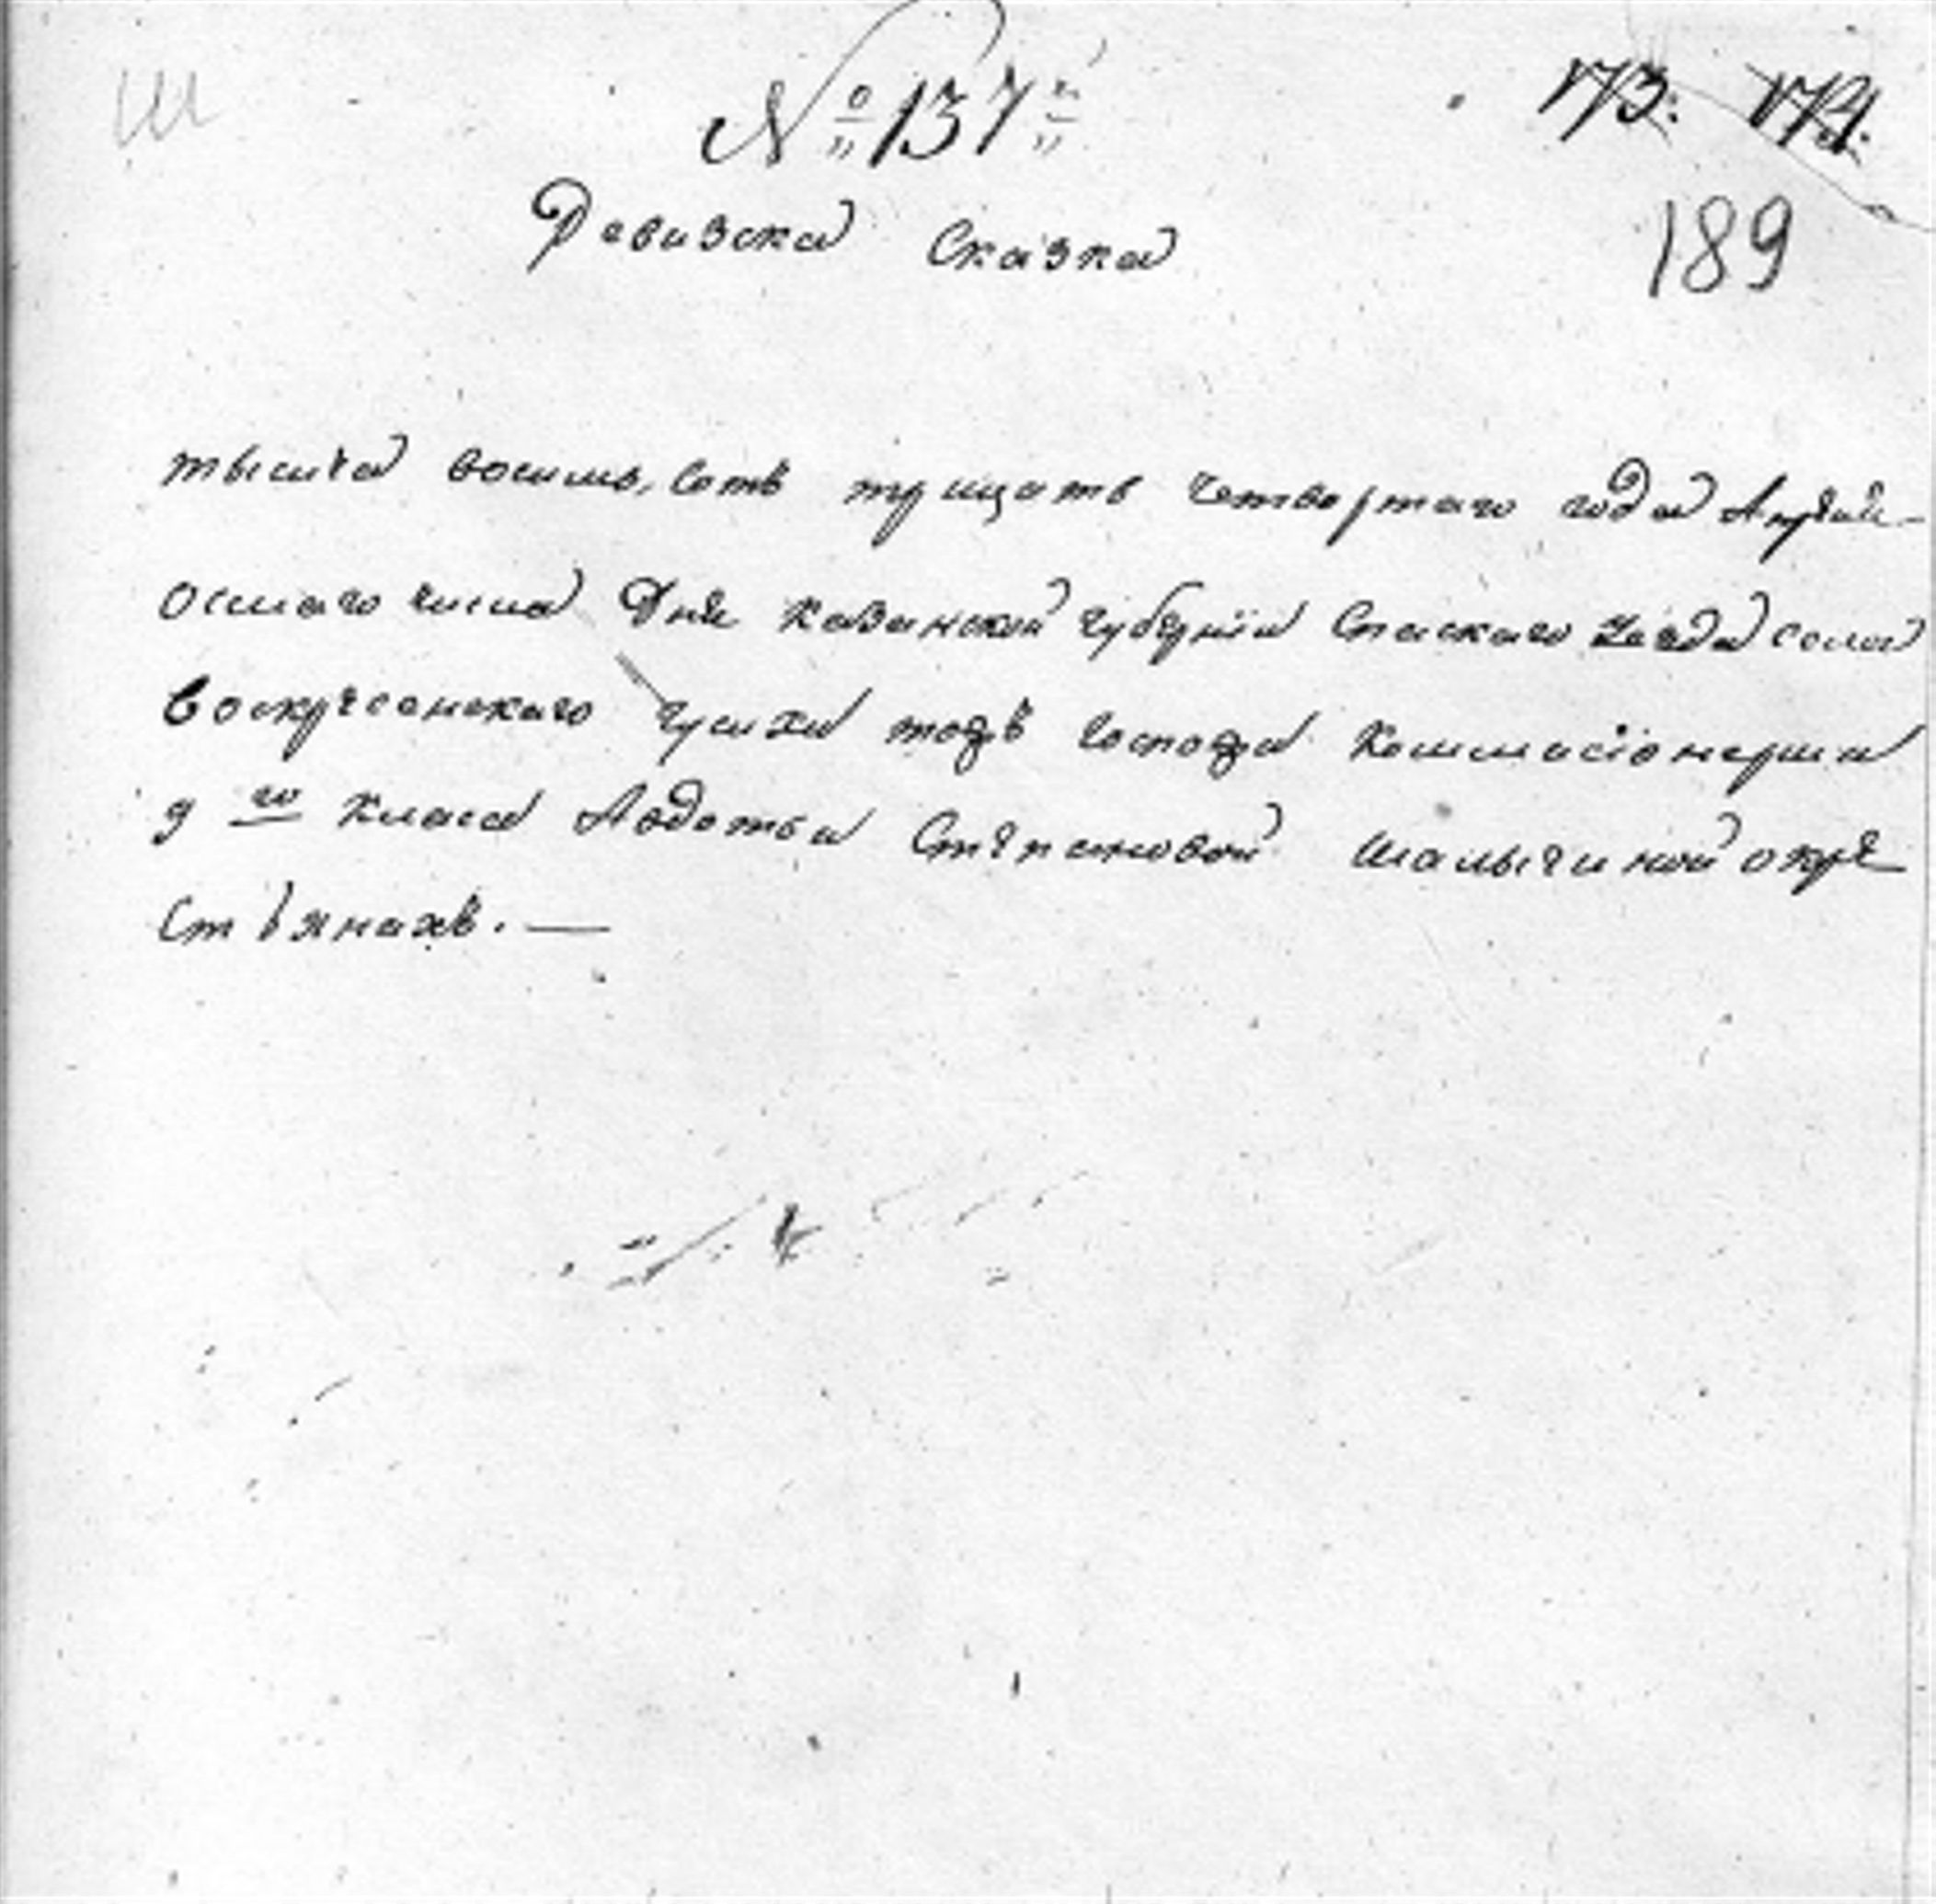 Ш
№ 137й
173. 174.
Ревизска Сказка
189
тысяча восимь, сотъ трицать четвертаго года Апреля
осмаго числа Дня казанской губерніи Спаскаго уезда села
воскресенскаго тожъ госпожи Коммисіонерши
9 го класа Авдотьи Степановой Шалычиной о кре
стьянахъ. —